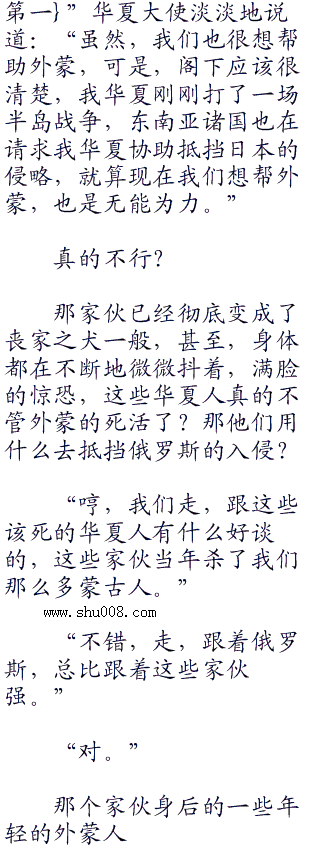 第一}”华夏大使淡淡地说
道：“虽然，我们也很想帮
助外蒙，可是，阁下应该很
清楚，我华夏刚刚打了一场
半岛战争，东南亚诸国也在
请求我华夏协助抵挡日本的
侵略，就算现在我们想帮外
蒙，也是无能为力。”
真的不行？
那家伙已经彻底变成了
丧家之犬一般，甚至，身体
都在不断地微微抖着，满脸
的惊恐，这些华夏人真的不
管外蒙的死活了？那他们用
什么去抵挡俄罗斯的入侵？
“哼，我们走，跟这些
该死的华夏人有什么好谈
的，这些家伙当年杀了我们
那么多蒙古人。”
www.shu008.com
“不错，走，跟着俄罗
斯，总比跟着这些家伙
强。”
“对。”
那个家伙身后的一些年
轻的外蒙人